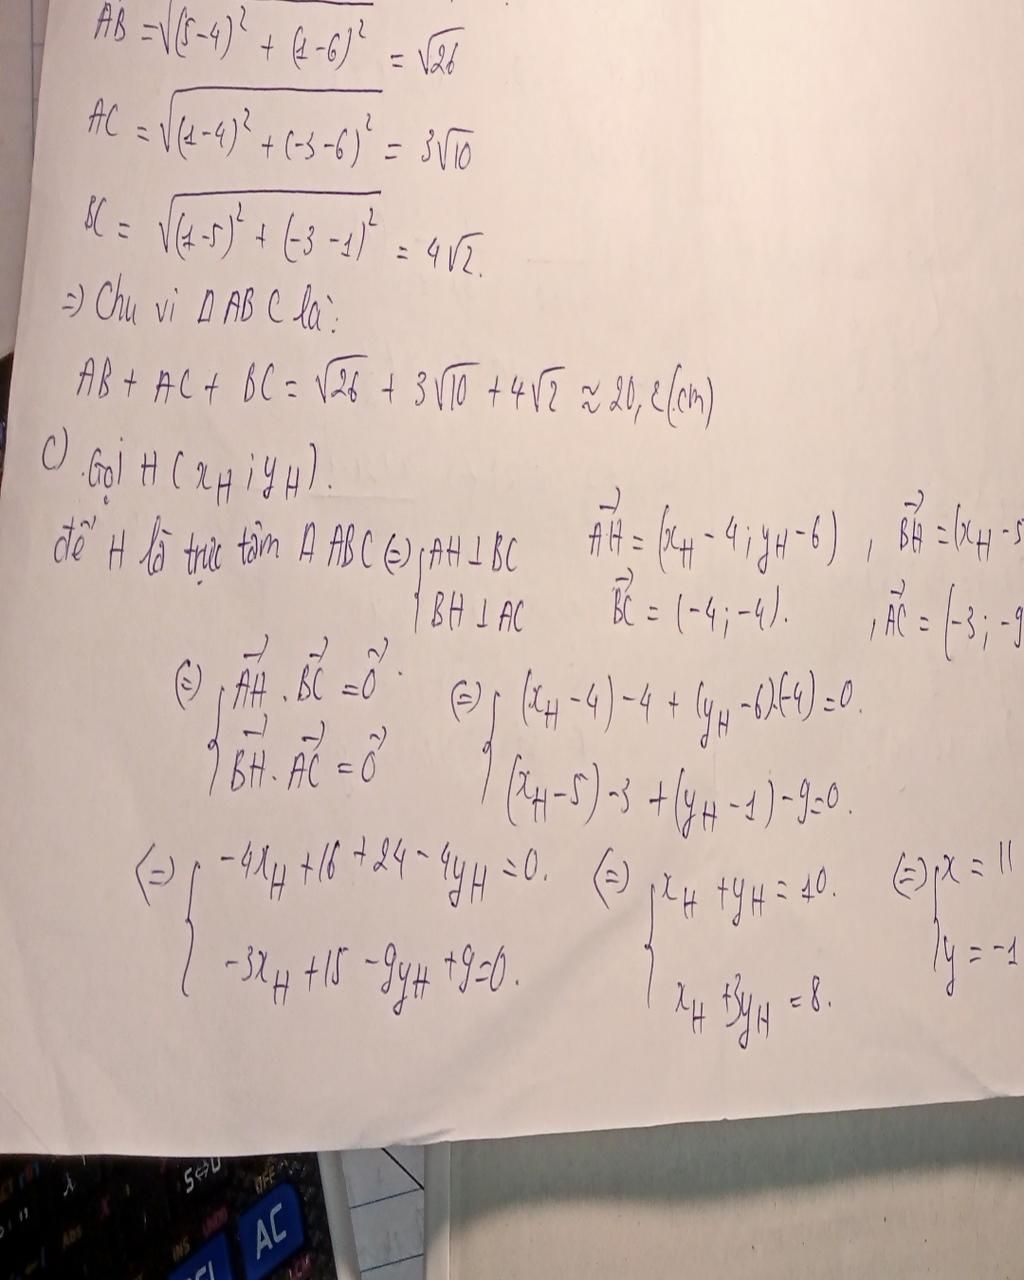 AB = √(5-4)² + (1-6)² = √26
AC = √(1-4)² + (-3-6)² = 3√10
BC = √(1-5)² + (-3-1)² = 4√2.
=) Chu vi Δ ABC là:
AB + AC + BC = √26 + 3√10 + 4√2 ≈ 20,2 (cm)
c) Gọi H (x_H ; y_H).
để H là trực tâm Δ ABC (=) { AH ⊥ BC
BH ⊥ AC
AH→ = (x_H - 4; y_H - 6) , BH→ = (x_H - 5
BC→ = (-4; -4). , AC→ = (-3; -9
(=) { AH→ . BC→ = 0→
BH→ . AC→ = 0→
(=) { (x_H - 4) - 4 + (y_H - 6).(-4) = 0.
(x_H - 5) - 3 + (y_H - 1) - 9 = 0.
(=) { -4x_H + 16 + 24 - 4y_H = 0.
-3x_H + 15 - 9y_H + 9 = 0.
(=) { x_H + y_H = 10.
x_H + 3y_H = 8.
(=) { x = 11
y = -1
S⇔D
OFF
AC
INS